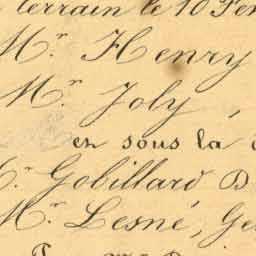 terrain le 10 Fev
Mr. Henry
Mr. Joly,
en sous la
Mr. Gobillard D
Mr. Lesné, Ge